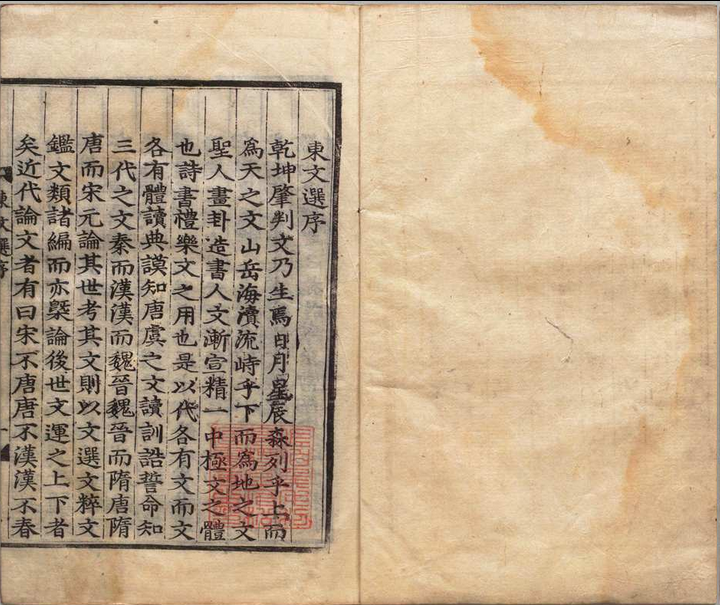 東文選序
乾坤肇判文乃生焉日月星辰森列乎上而
爲天之文山岳海瀆流峙乎下而爲地之文
聖人畫卦造書人文漸宣精一中極文之體
也詩書禮樂文之用也是以代各有文而文
各有體讀典謨知唐虞之文讀訓誥誓命知
三代之文秦而漢漢而魏晉魏晉而隋唐隋
唐而宋元論其世考其文則以文選文粹文
鑑文類諸編而亦槩論後世文運之上下者
矣近代論文者有曰宋不唐唐不漢漢不春
東文選序
一